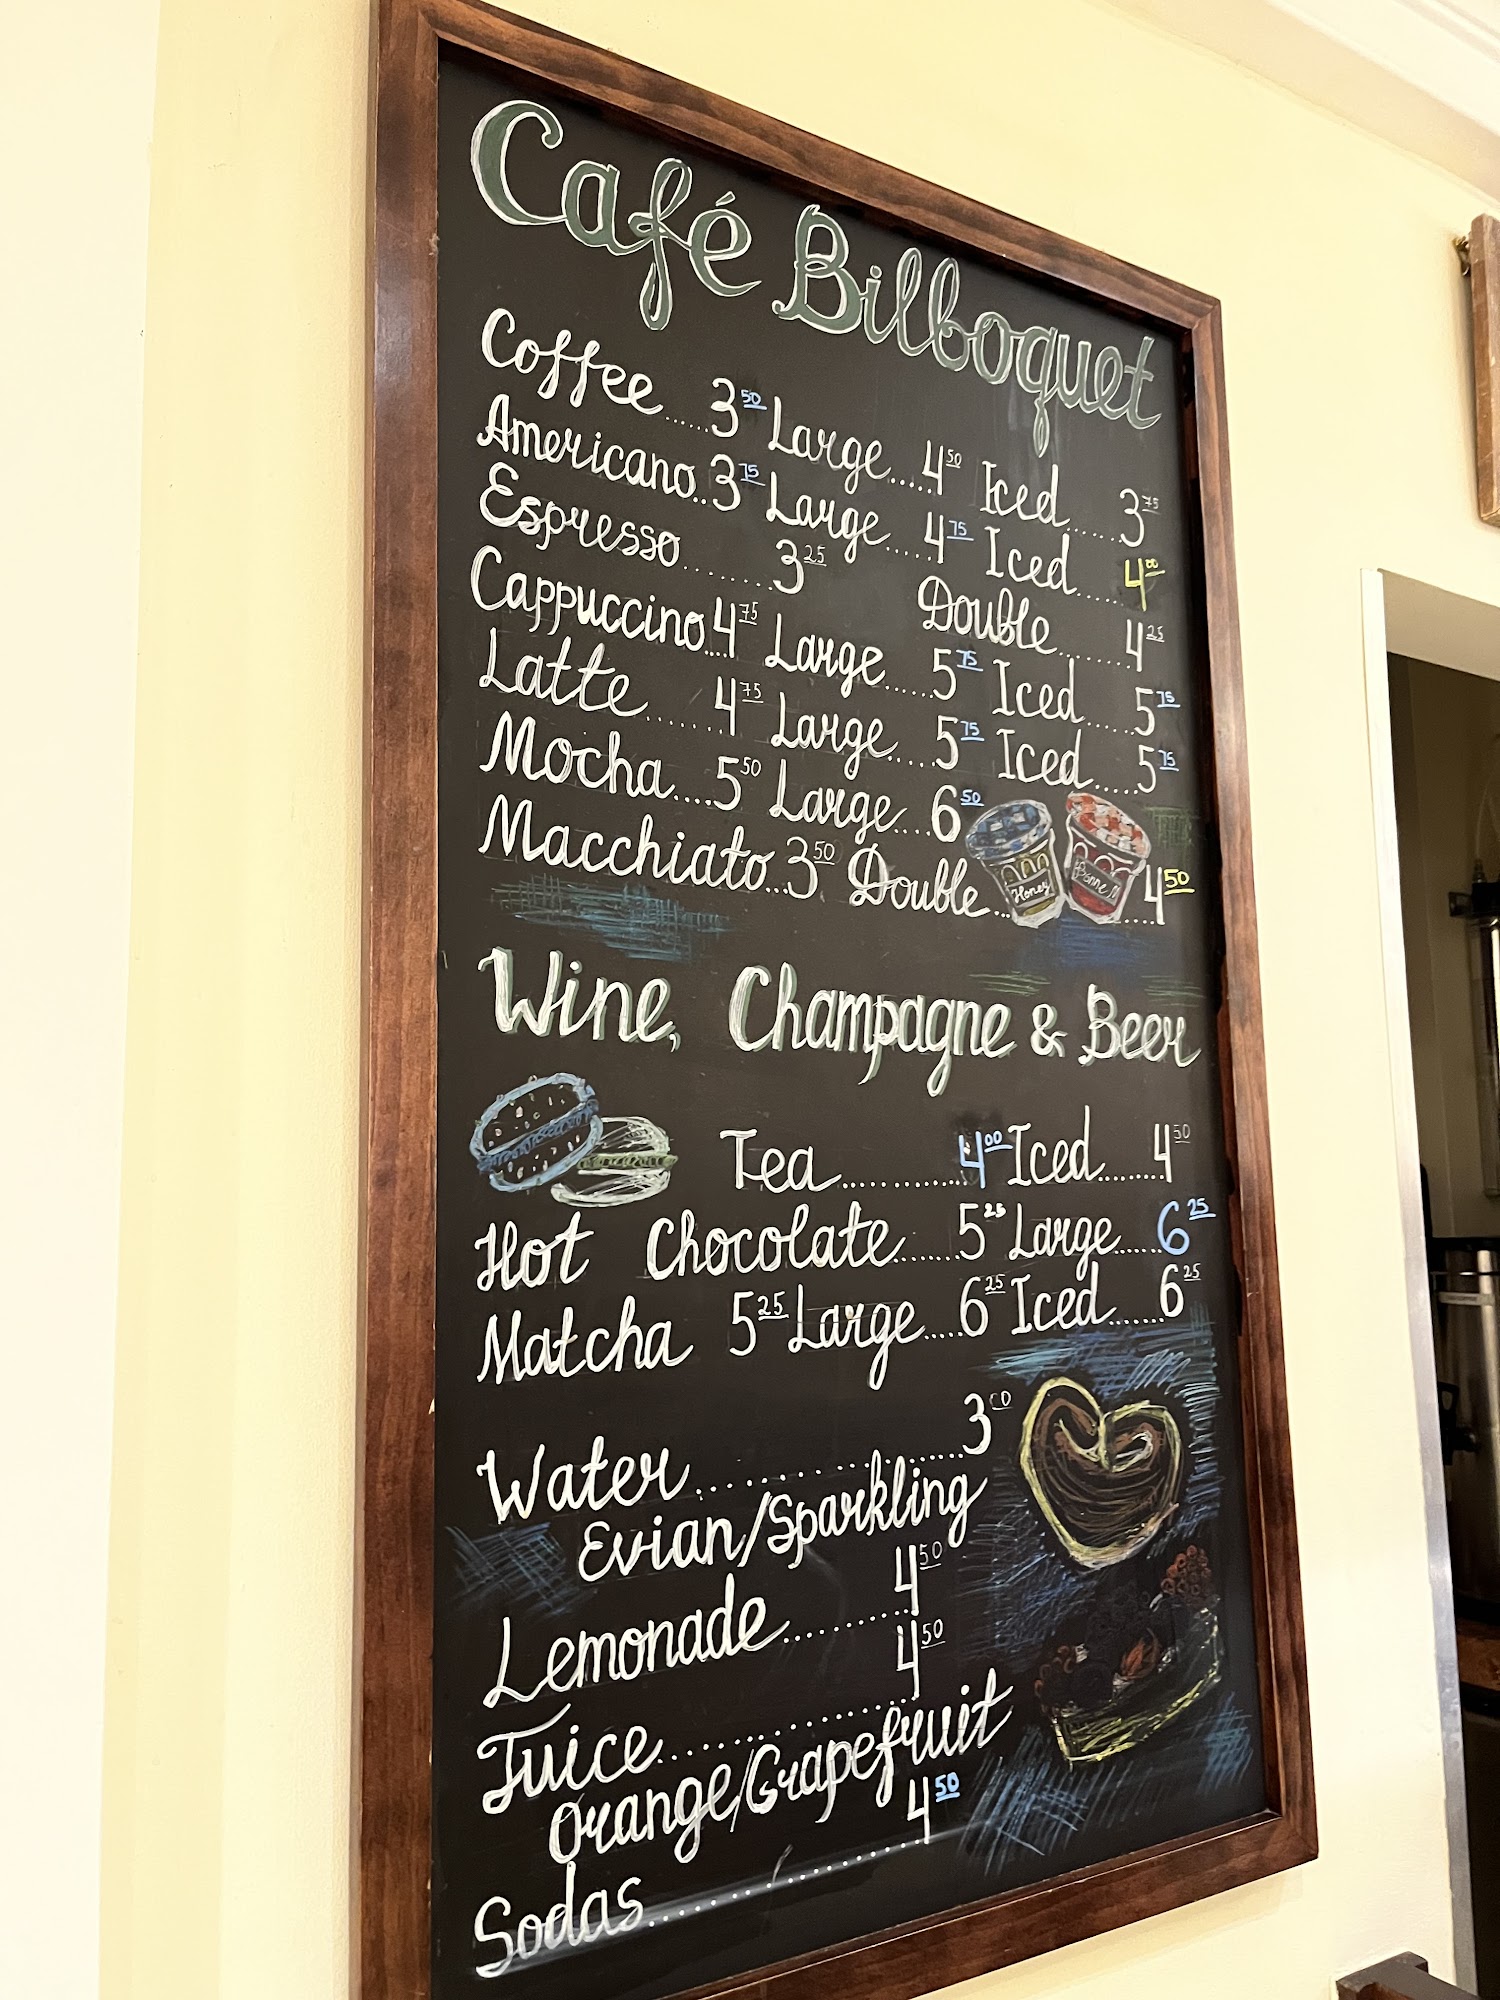 Café Bilboquet
Coffee.....3 50 Large.....4 50 Iced.....3 75
Americano..3 75 Large.....4 75 Iced.....4 00
Espresso........3 25 Double........4 25
Cappuccino...4 75 Large.....5 75 Iced....5 75
Latte......4 75 Large....5 75 Iced.....5 75
Mocha....5 50 Large...6 50
Macchiato...3 50 Double.......4 50
Honey
Bonne M
Wine, Champagne & Beer
Tea............4 00 Iced........4 50
Hot Chocolate.......5 25 Large.....6 25
Matcha 5 25 Large....6 25 Iced......6 25
Water..............3 00
Evian/Sparkling
Lemonade..........4 50
Juice................4 50
Orange/Grapefruit
Sodas................4 50